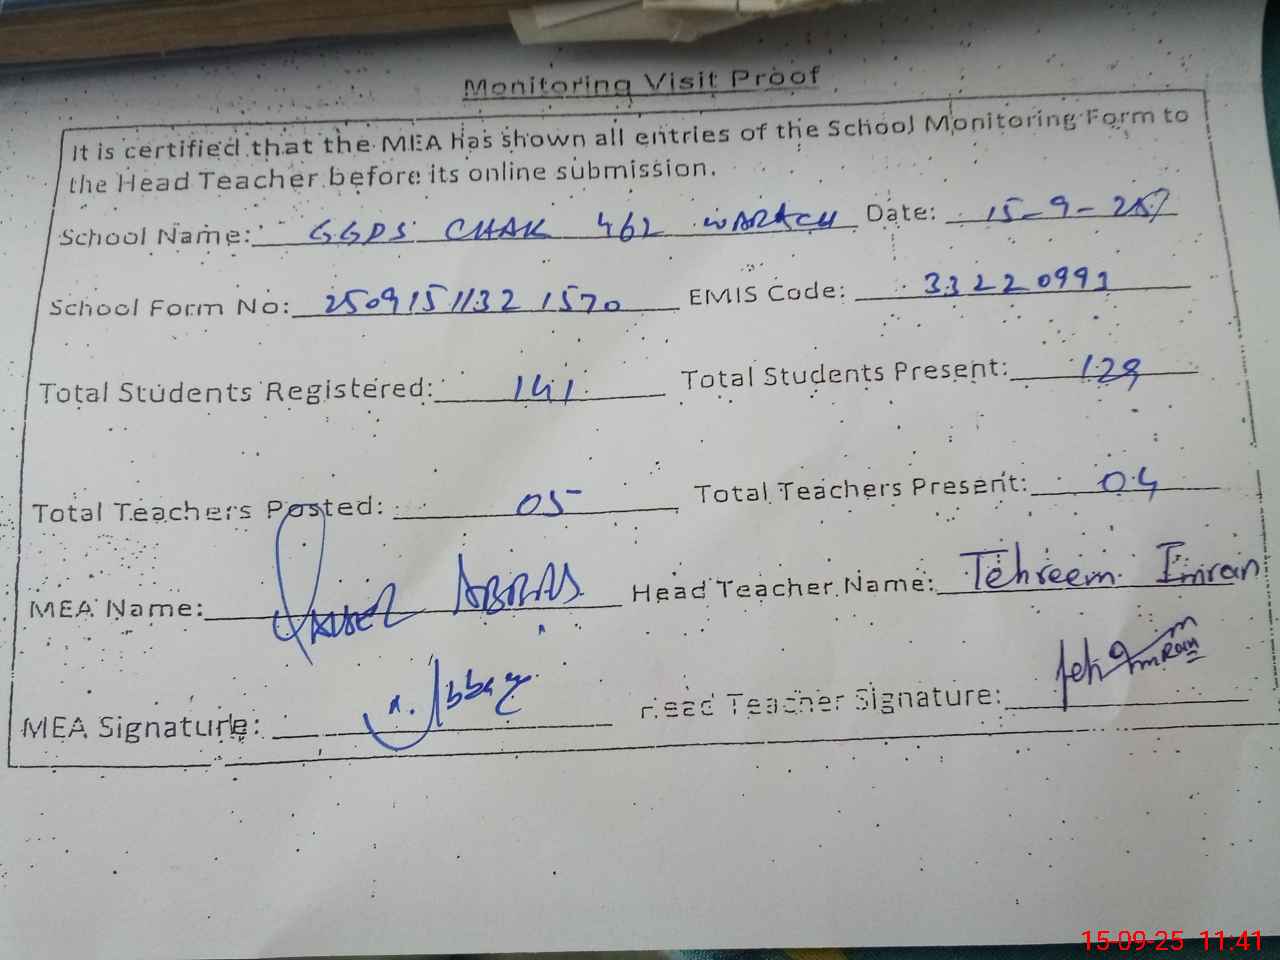 Monitoring Visit Proof
It is certified that the MEA has shown all entries of the School Monitoring Form to
the Head Teacher before its online submission.
School Name: GGPS CHAK 462 WARAICH Date: 15-9-25
School Form No: 2509151132 1570 EMIS Code: 33220993
Total Students Registered: 141 Total Students Present: 129
Total Teachers Posted: 05 Total Teachers Present: 04
MEA Name: ABBAS Head Teacher Name: Tehreem Imran
MEA Signature: Abbas Head Teacher Signature: Teh Imran
15-09-25 11:41